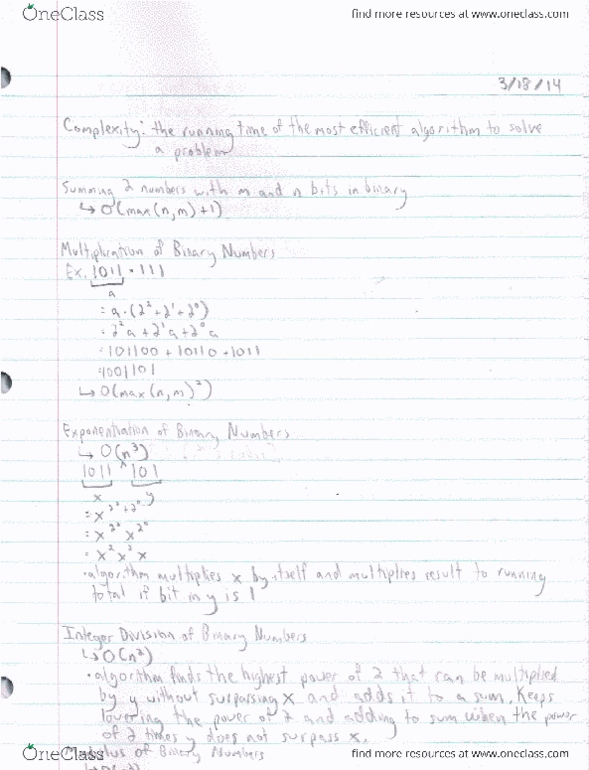 OneClass find more resources at www.oneclass.com
3/18/14
Complexity: the running time of the most efficient algorithm to solve
a problem
Summing 2 numbers with m and n bits in binary
↳ O(max(n,m)+1)
Multiplication of Binary Numbers
Ex. 1011 · 111
a
= a·(2²+2¹+2⁰)
= 2²a+2¹a+2⁰a
= 101100 + 10110 + 1011
=1001101
↳ O(max(n,m)²)
Exponentiation of Binary Numbers
↳ O(n³)
1011 ^ 101
x y
= x
= x
= x² x² x
·algorithm multiplies x by itself and multiplies result to running
total if bit in y is 1
Integer Division of Binary Numbers
↳ O(n²)
·algorithm finds the highest power of 2 that can be multiplied
by y without surpassing x and adds it to a sum. Keeps
lowering the power of 2 and adding to sum when the power
of 2 times y does not surpass x.
of Binary Numbers
OneClass find more resources at www.oneclass.com